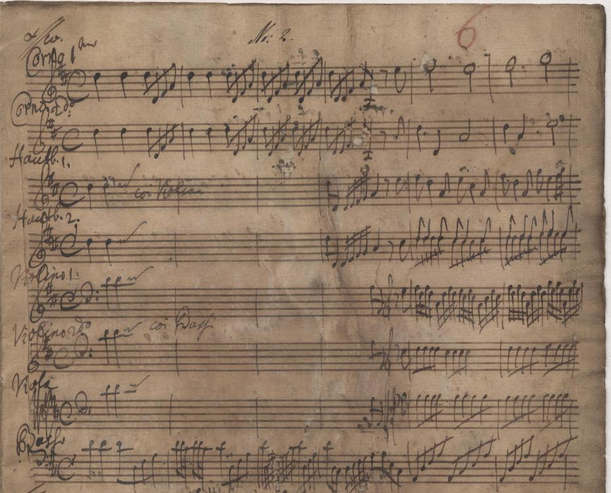 No: 2.
6
Corno 1mo
Corno 2do
Hautb. 1.
coi Violini
Hautb. 2.
Violino 1.
Violino 2do
coi Bassi
Viola
Basso